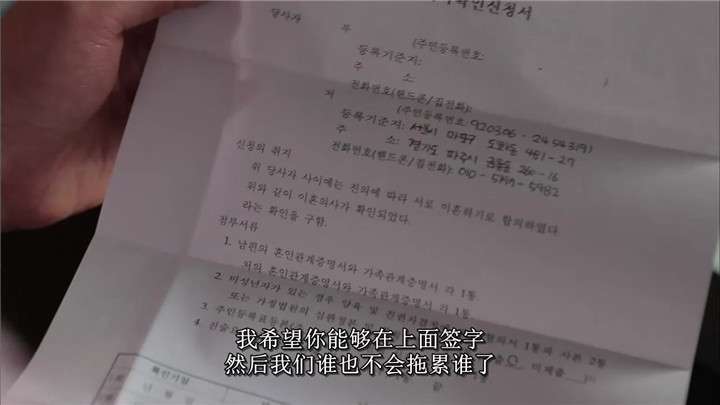 확인신청서
당사자 부
(주민등록번호:
등록기준지:
주 소:
전화번호(핸드폰/집전화):
처 (주민등록번호: 920306-2454391)
등록기준지: 서울시 마포구 도화동 461-29
주 소: 경기도 파주시 금릉동 260-16
전화번호(핸드폰/집전화): 010-5199-5982
신청의 취지
위 당사자 사이에는 진의에 따라 서로 이혼하기로 합의하였다.
위와 같이 이혼의사가 확인되었다.
라는 확인을 구함.
첨부서류
1. 남편의 혼인관계증명서와 가족관계증명서 각 1통.
처의 혼인관계증명서와 가족관계증명서 각 1통.
2. 미성년자가 있는 경우 양육 및 친권자결정
협의서 1통과 사본 2통
또는 가정법원의 심판정본 및
3. 주민등록표등본
미제출
4. 진술
확인기일
년 월 일
我希望你能够在上面签字
然后我们谁也不会拖累谁了